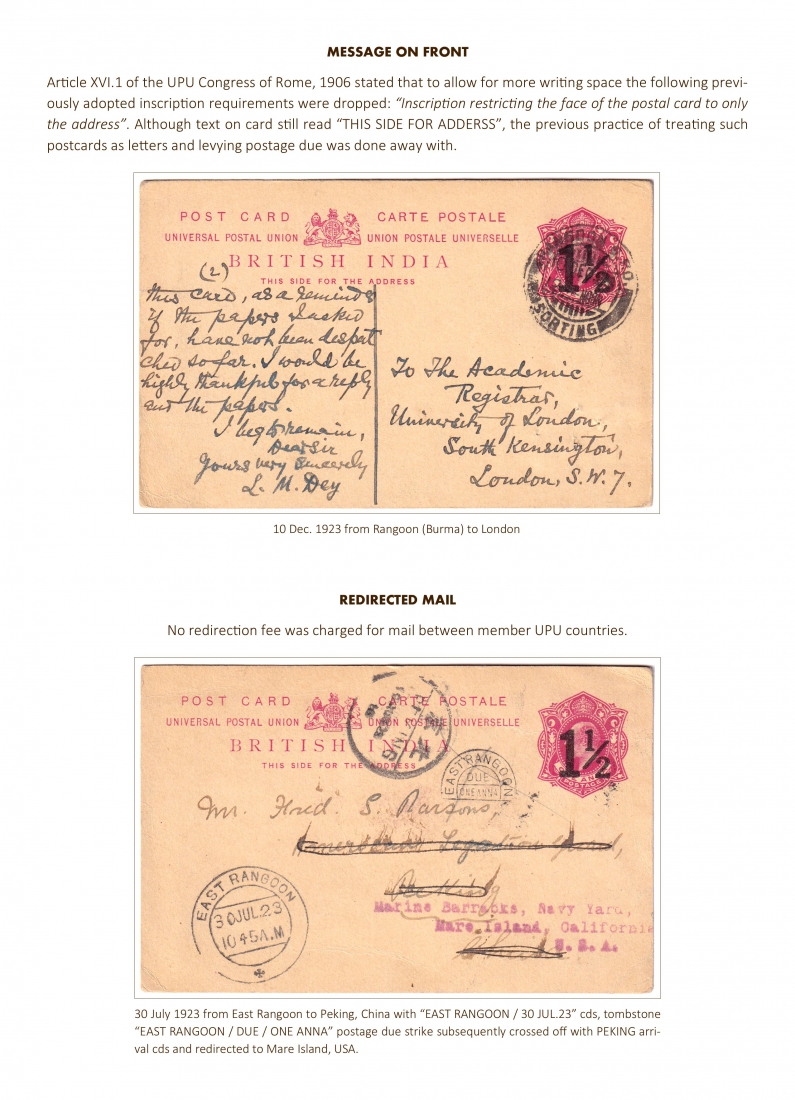 MESSAGE ON FRONT
Article XVI.1 of the UPU Congress of Rome, 1906 stated that to allow for more writing space the following previ-
ously adopted inscription requirements were dropped: “Inscription restricting the face of the postal card to only
the address”. Although text on card still read “THIS SIDE FOR ADDERSS”, the previous practice of treating such
postcards as letters and levying postage due was done away with.
POST CARD CARTE POSTALE
UNIVERSAL POSTAL UNION UNION POSTALE UNIVERSELLE
BRITISH INDIA
THIS SIDE FOR THE ADDRESS
1½
SORTING
(2)
this card, as a reminder
if the papers I asked
for, have not been despat
ched so far. I would be
highly thankful for a reply
and the papers.
I beg to remain,
Dear Sir
Yours very sincerely
L. M. Dey
To The Academic
Registrar,
University of London,
South Kensington,
London, S.W.7.
10 Dec. 1923 from Rangoon (Burma) to London
REDIRECTED MAIL
No redirection fee was charged for mail between member UPU countries.
POST CARD CARTE POSTALE
UNIVERSAL POSTAL UNION UNION POSTALE UNIVERSELLE
BRITISH INDIA
THIS SIDE FOR THE ADDRESS
1½
EAST RANGOON
DUE
ONE ANNA
Mr. Fred. S. Parsons,
EAST RANGOON
30 JUL.23
10 45 A.M
Marine Barracks, Navy Yard,
Mare Island, California
U.S.A.
30 July 1923 from East Rangoon to Peking, China with “EAST RANGOON / 30 JUL.23” cds, tombstone
“EAST RANGOON / DUE / ONE ANNA” postage due strike subsequently crossed off with PEKING arri-
val cds and redirected to Mare Island, USA.